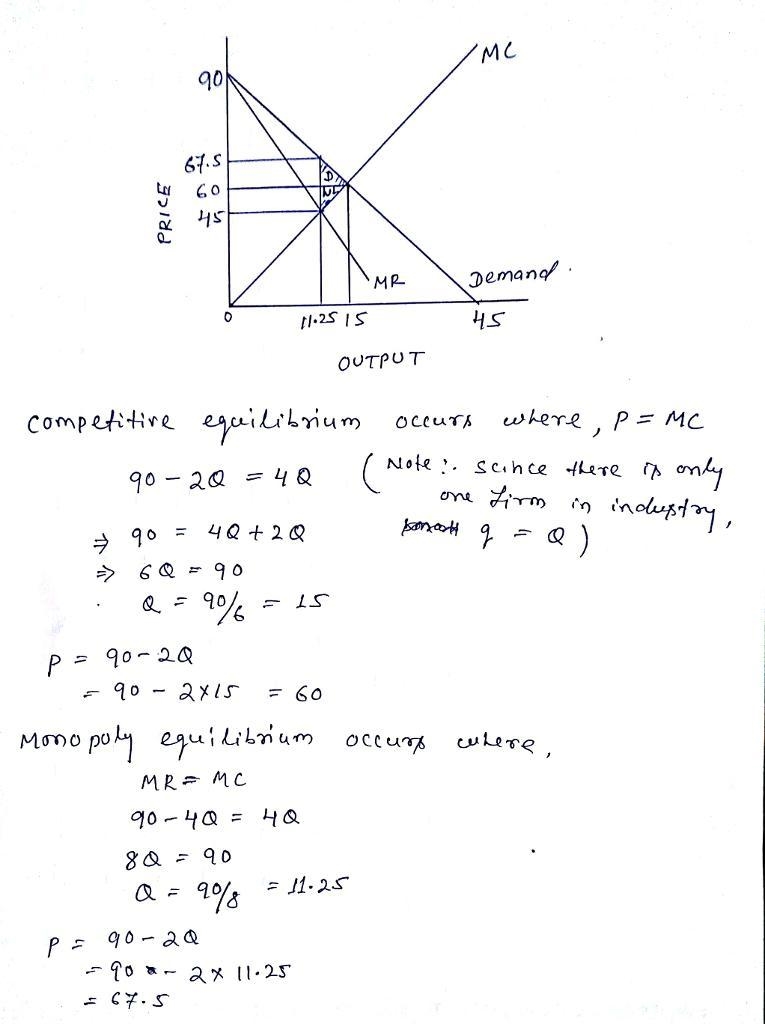 MC
90
67.5
D
60
WL
45
PRICE
MR
Demand.
0
11.25 15
45
OUTPUT
competitive equilibrium occurs where, P = MC
90 - 2Q = 4Q
(Note:. scince there is only
one firm in industry,
q = Q)
⇒ 90 = 4Q + 2Q
⇒ 6Q = 90
Q = 90/6 = 15
P = 90 - 2Q
= 90 - 2×15 = 60
Monopoly equilibrium occurs where,
MR = MC
90 - 4Q = 4Q
8Q = 90
Q = 90/8 = 11.25
P = 90 - 2Q
= 90 - 2 × 11.25
= 67.5